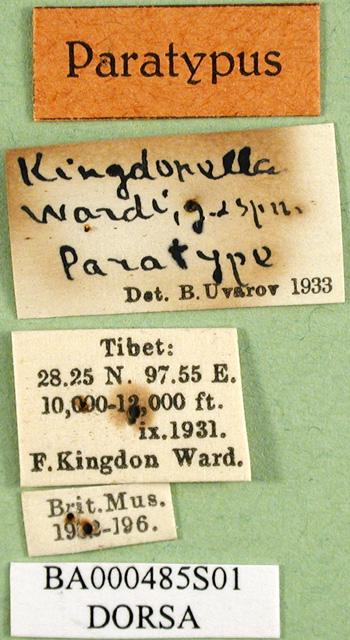 Paratypus
Kingdonella
Wardi, g. & sp. n.
Paratype
Det. B. Uvarov 1933
Tibet:
28.25 N. 97.55 E.
10,000-13,000 ft.
ix.1931.
F. Kingdon Ward.
Brit. Mus.
1932-196.
BA000485S01
DORSA